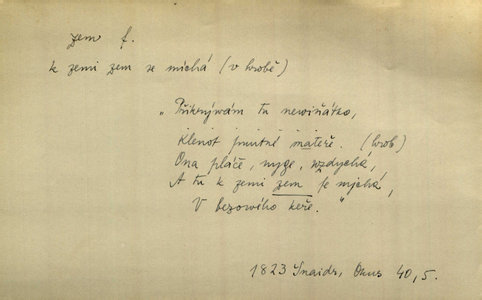 zem f.
k zemi zem se míchá (v hrobě)
„Přikrýwám tu newiňátko,
Klenot smutné mateře. (hrob)
Ona pláče, nyge, wzdychá,
A tu k zemi zem se mjchá,
V bezového keře."
1823 Šnaidr, Okus 40,5.